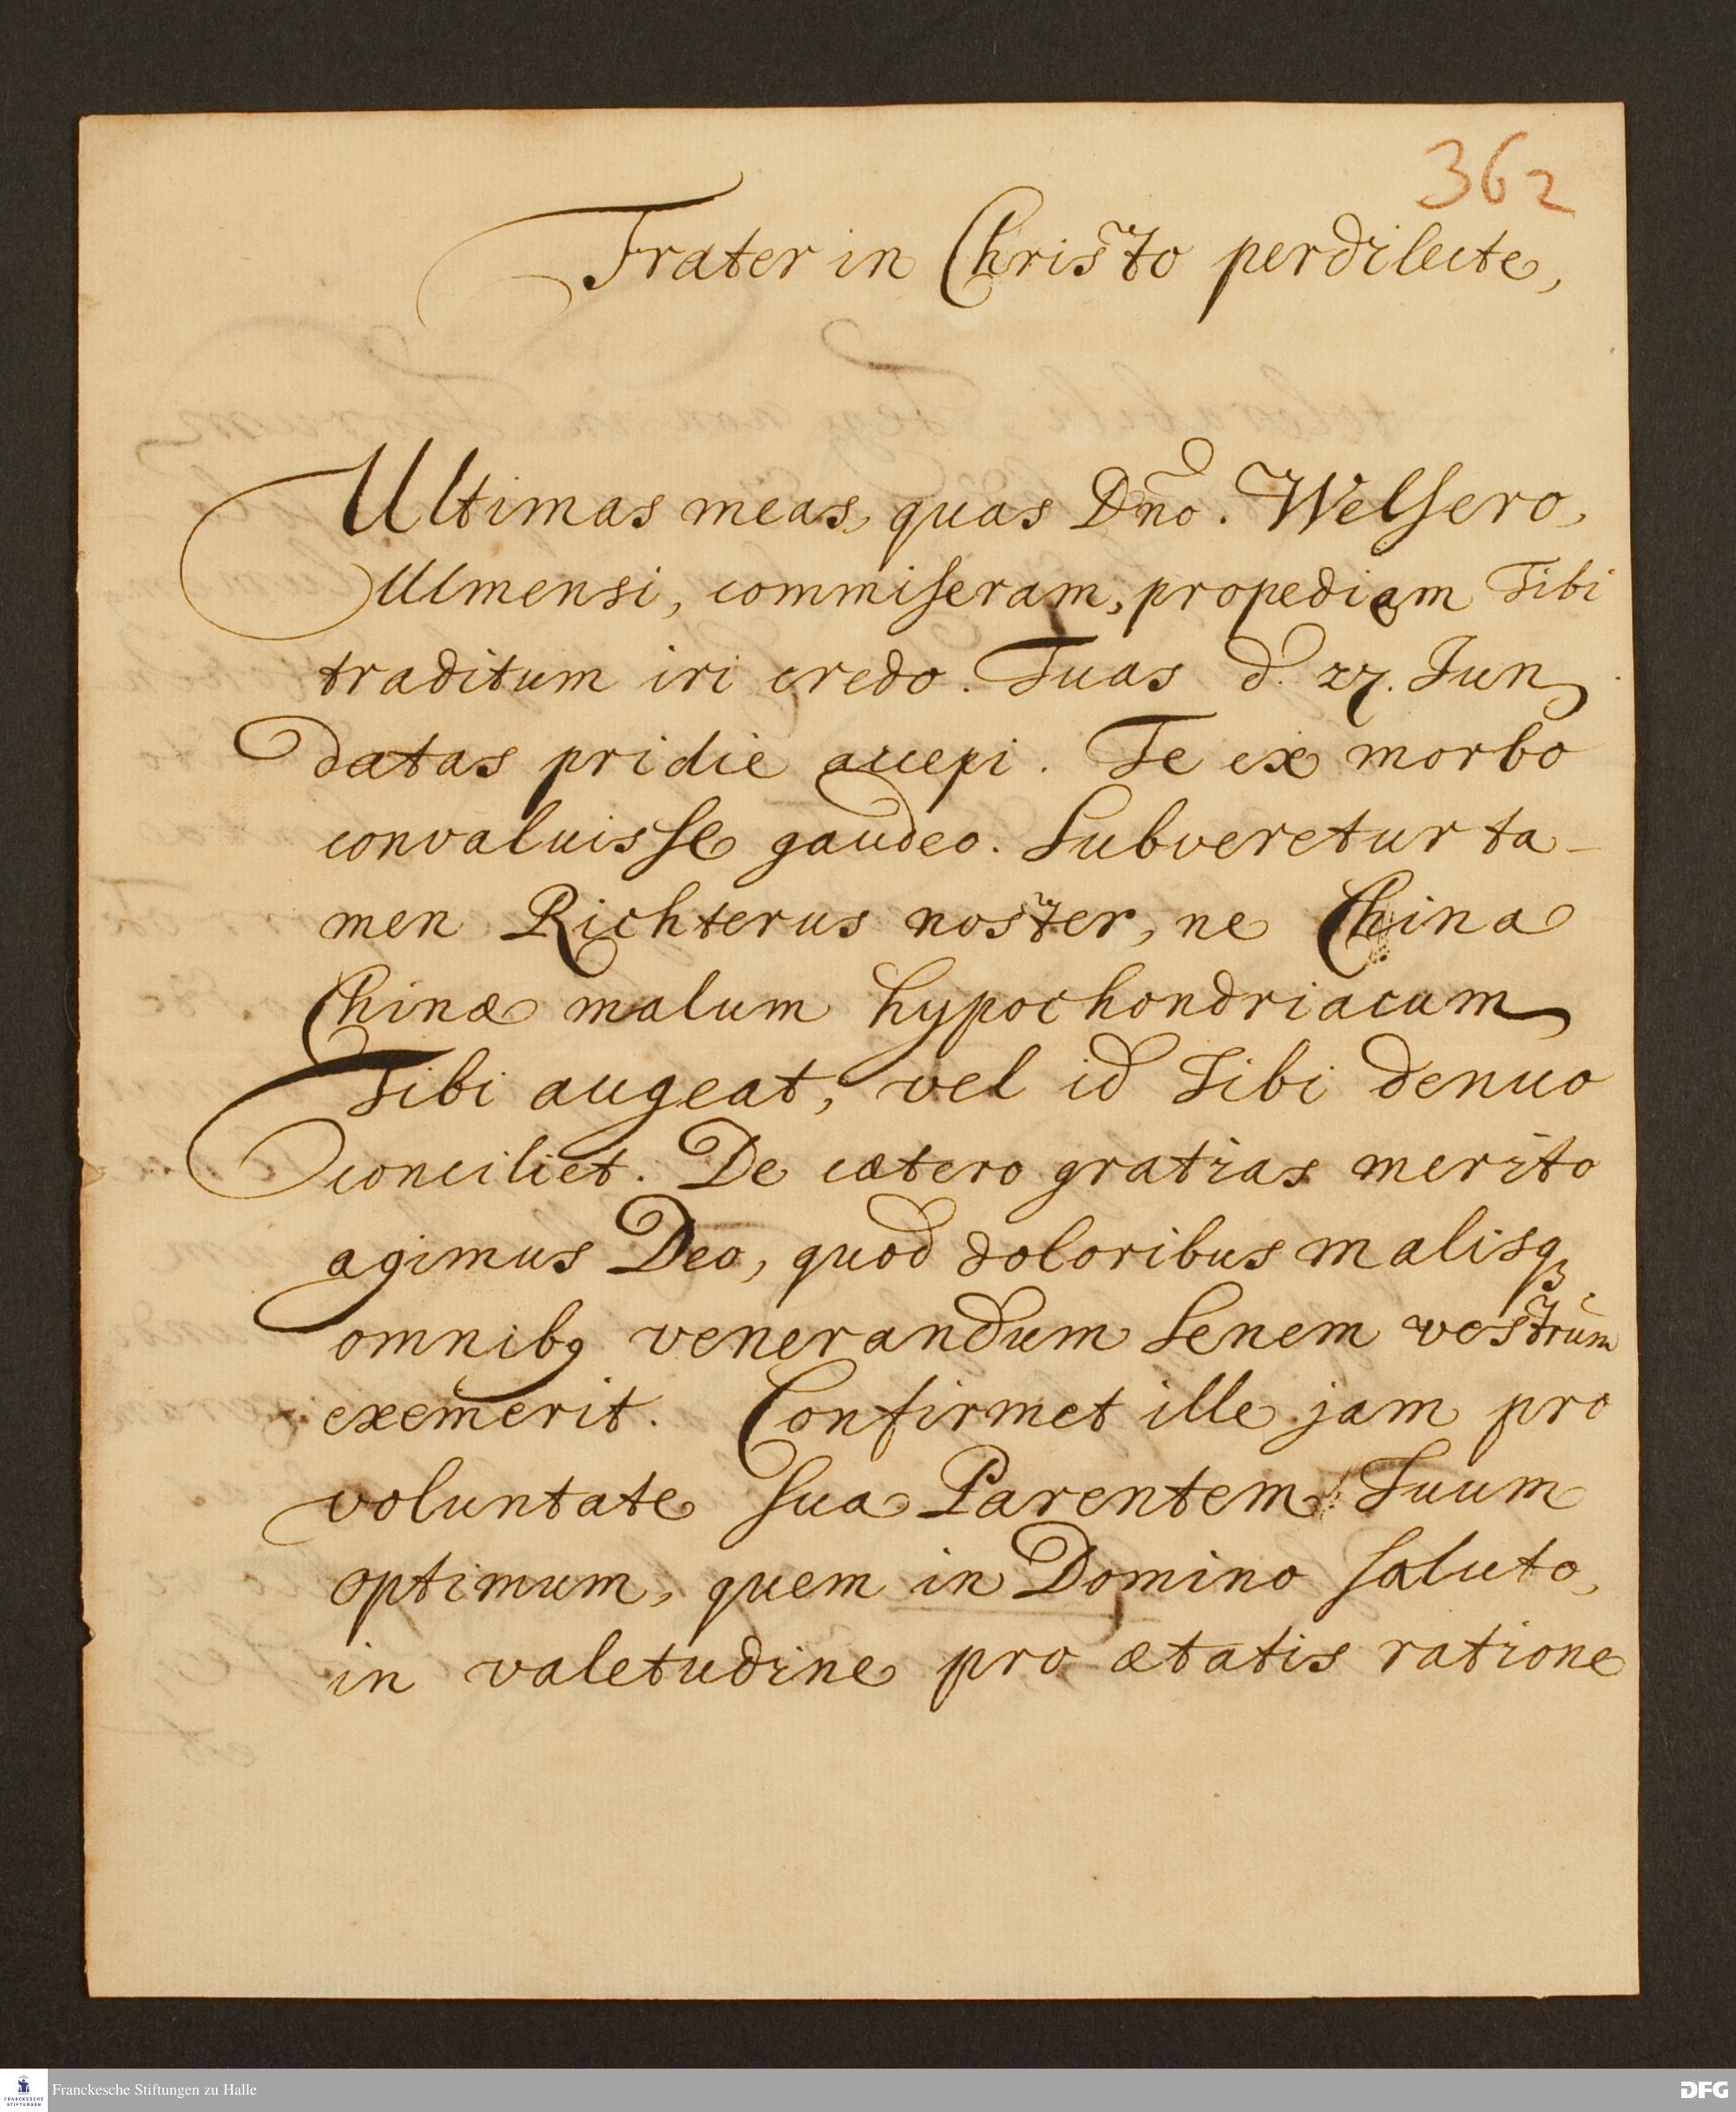 362
Frater in Christo perdilecte,
Ultimas meas, quas Dn̄o. Welsero,
Ulmensi, commiseram, propediem Tibi
traditum iri credo. Tuas d. 27. Jun
datas pridie accepi. Te ex morbo
convaluisse gaudeo. Subveretur ta-
men Richterus noster, ne China
Chinæ malum hypochondriacum
Tibi augeat, vel id Tibi denuo
conciliet. De cætero gratias merito
agimus Deo, quod doloribus malisq;
omnibꝰ venerandum Senem vestrum
exemerit. Confirmet ille jam pro
voluntate sua Parentem Tuum
optimum, quem in Domino saluto,
in valetudine pro ætatis ratione
Franckesche Stiftungen zu Halle
FRANCKESCHE
STIFTUNGEN
DFG